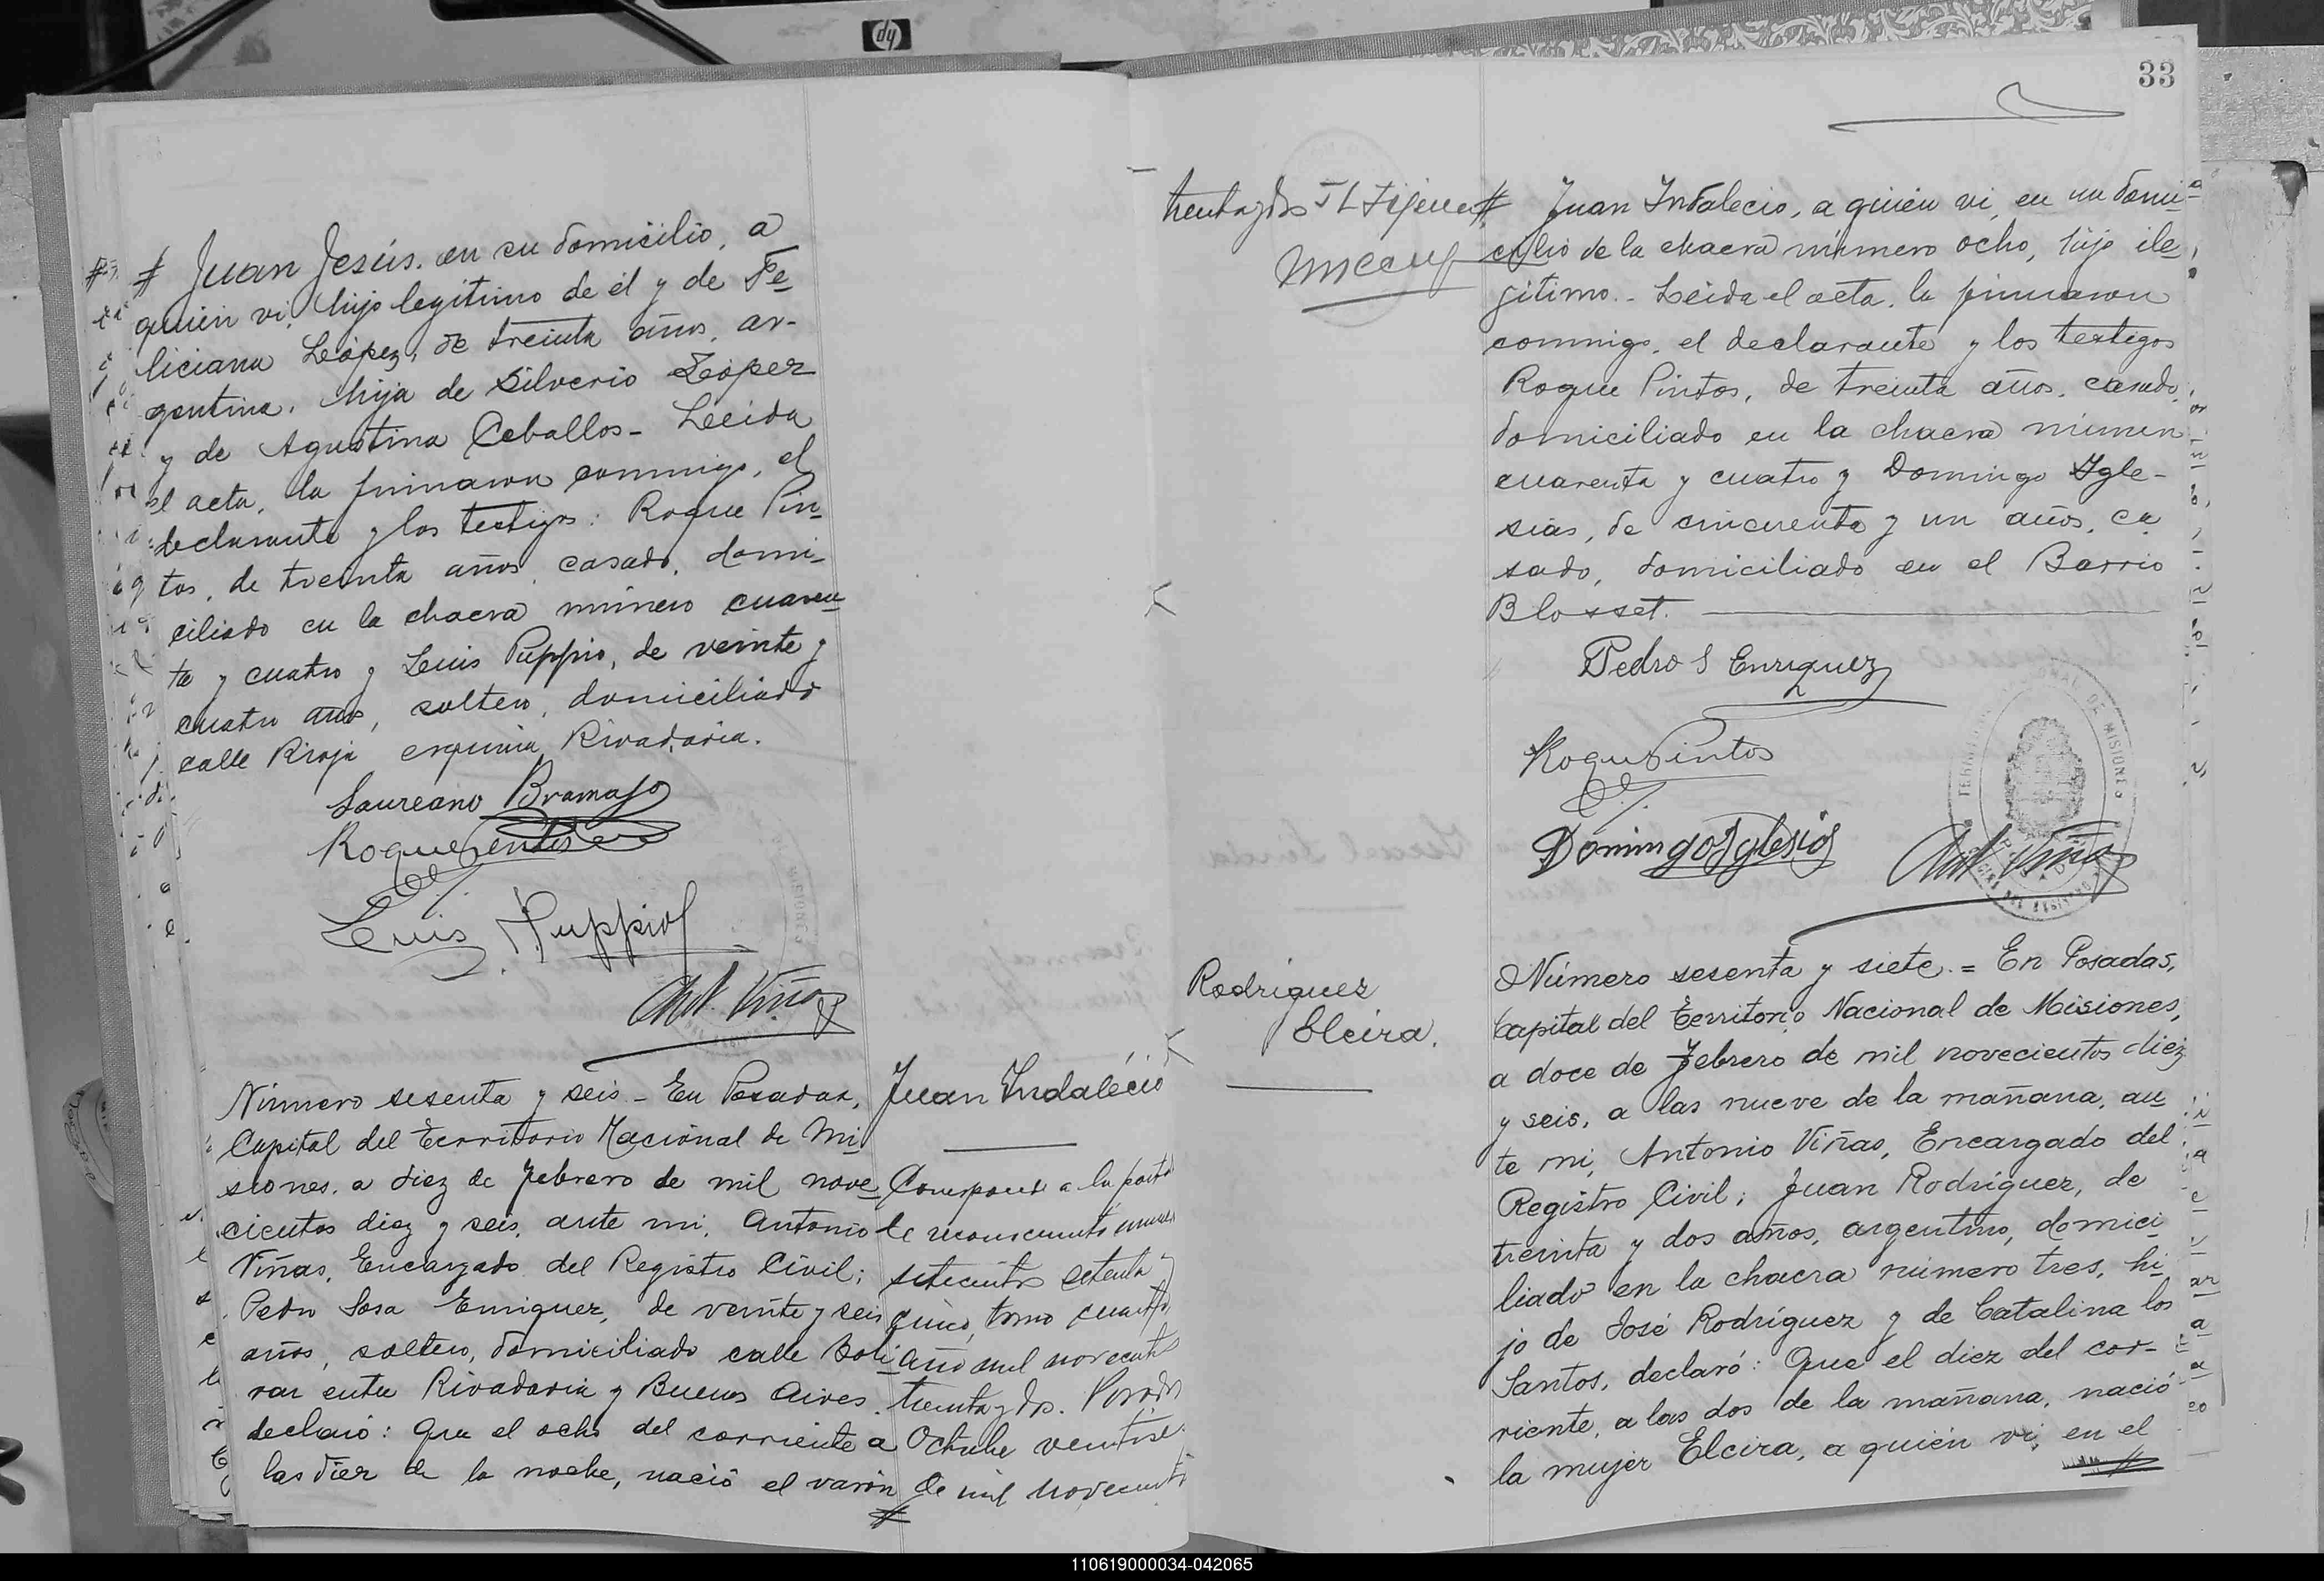 # Juan Jesús. en su domicilio, a
quien vi, hijo legítimo de él y de Fe-
liciana López, de treinta años, ar-
gentina, hija de Silverio López
y de Agustina Ceballos - Leida
el acta, la firmaron conmigo, el
declarante y los testigos: Roque Pin-
tos, de treinta años, casado, domi-
ciliado en la chacra número cuaren-
ta y cuatro y Luis Puppio, de veinte y
cuatro años, soltero, domiciliado
calle Rioja esquina Rivadavia.
Laureano Bramajo
Roque Pintos
Luis Puppio
Ant. Viñas
Número sesenta y seis - En Posadas,
Capital del Territorio Nacional de Mi-
siones, a diez de Febrero de mil nove-
cientos diez y seis, ante mi, Antonio
Viñas, Encargado del Registro Civil;
Pedro Sosa Enriquez, de veinte y seis
años, soltero, domiciliado calle Boli-
var entre Rivadavia y Buenos Aires,
declaró: Que el ocho del corriente a
las diez de la noche, nació el varón
#
Juan Indalécio
Corresponde a la
de reconocimiento
setecientos setenta y
cinco, tomo cuarto,
año mil novecientos
treinta y dos. Posadas
Octubre
de mil novecientos
33
treinta y dos
# Juan Indalecio, a quien vi, en su domi-
cilio de la chacra número ocho, hijo ile-
gítimo. - Leida el acta, la firmaron
conmigo, el declarante y los testigos
Roque Pintos, de treinta años, casado,
domiciliado en la chacra número
cuarenta y cuatro y Domingo Igle-
sias, de cincuenta y un años, ca-
sado, domiciliado en el Barrio
Blosset.
Pedro S Enriquez
Roque Pintos
Domingo Iglesias
Ant. Viñas
Rodríguez
Elcira.
Número sesenta y siete. = En Posadas,
Capital del Territorio Nacional de Misiones,
a doce de Febrero de mil novecientos diez
y seis, a las nueve de la mañana, an-
te mi, Antonio Viñas, Encargado del
Registro Civil; Juan Rodríguez, de
treinta y dos años, argentino, domici-
liado en la chacra número tres, hi-
jo de José Rodríguez y de Catalina los
Santos, declaró: Que el diez del cor-
riente, a las dos de la mañana, nació
la mujer Elcira, a quién vi, en el
#
110619000034-042065